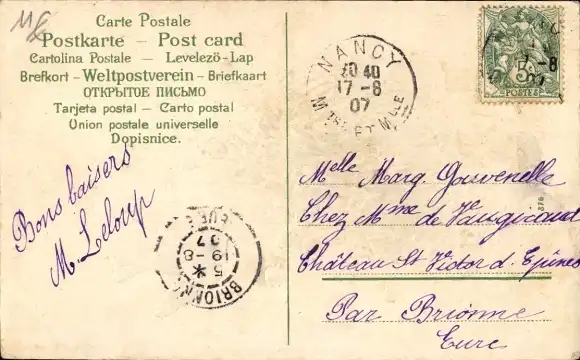 Carte Postale
Postkarte – Post card
Cartolina Postale – Levelezö-Lap
Brefkort - Weltpostverein - Briefkaart
ОТКРЫТОЕ ПИСЬМО
Tarjeta postal – Carto postal
Union postale universelle
Dopisnice.
Bons baisers
M. Leloup
NANCY
20 40
17 - 8
07
Mthe ET Mlle
BRIONNE
EURE
5 *
19 - 8
07
5c
POSTES
Melle Marg. Gouvenelle
Chez Mme de Vaugicaud
Château St Victor d. Epines
Par Brionne
Eure